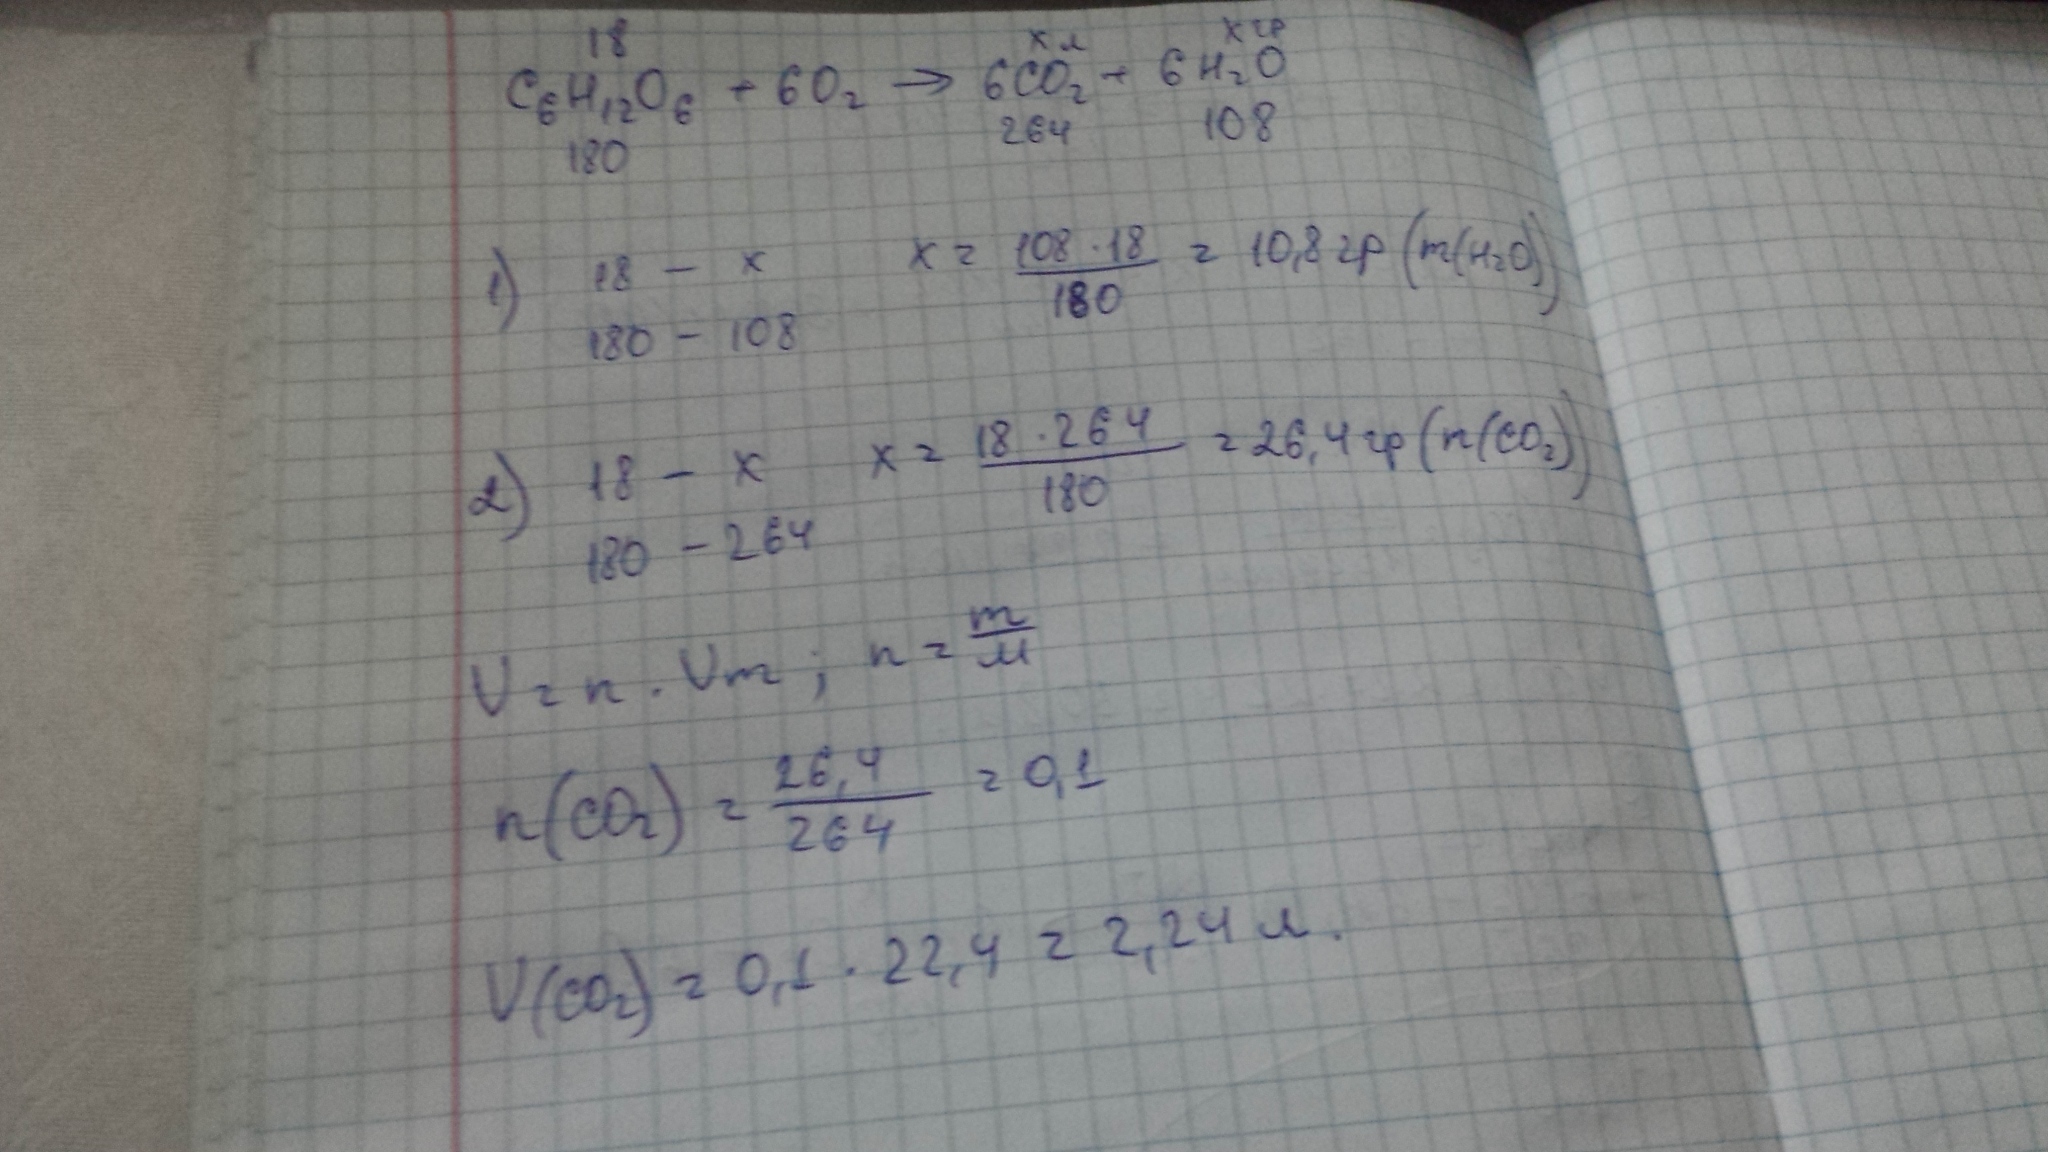 18 х л х гр
C₆H₁₂O₆ + 6O₂ → 6CO₂ + 6H₂O
180 264 108
1) 18 – x x = 108·18/180 = 10,8 гр (m(H₂O))
180 – 108
2) 18 – x x = 18·264/180 = 26,4 гр (n(CO₂))
180 – 264
V = n · Vm ; n = m/M
n(CO₂) = 26,4/264 = 0,1
V(CO₂) = 0,1 · 22,4 = 2,24 л.